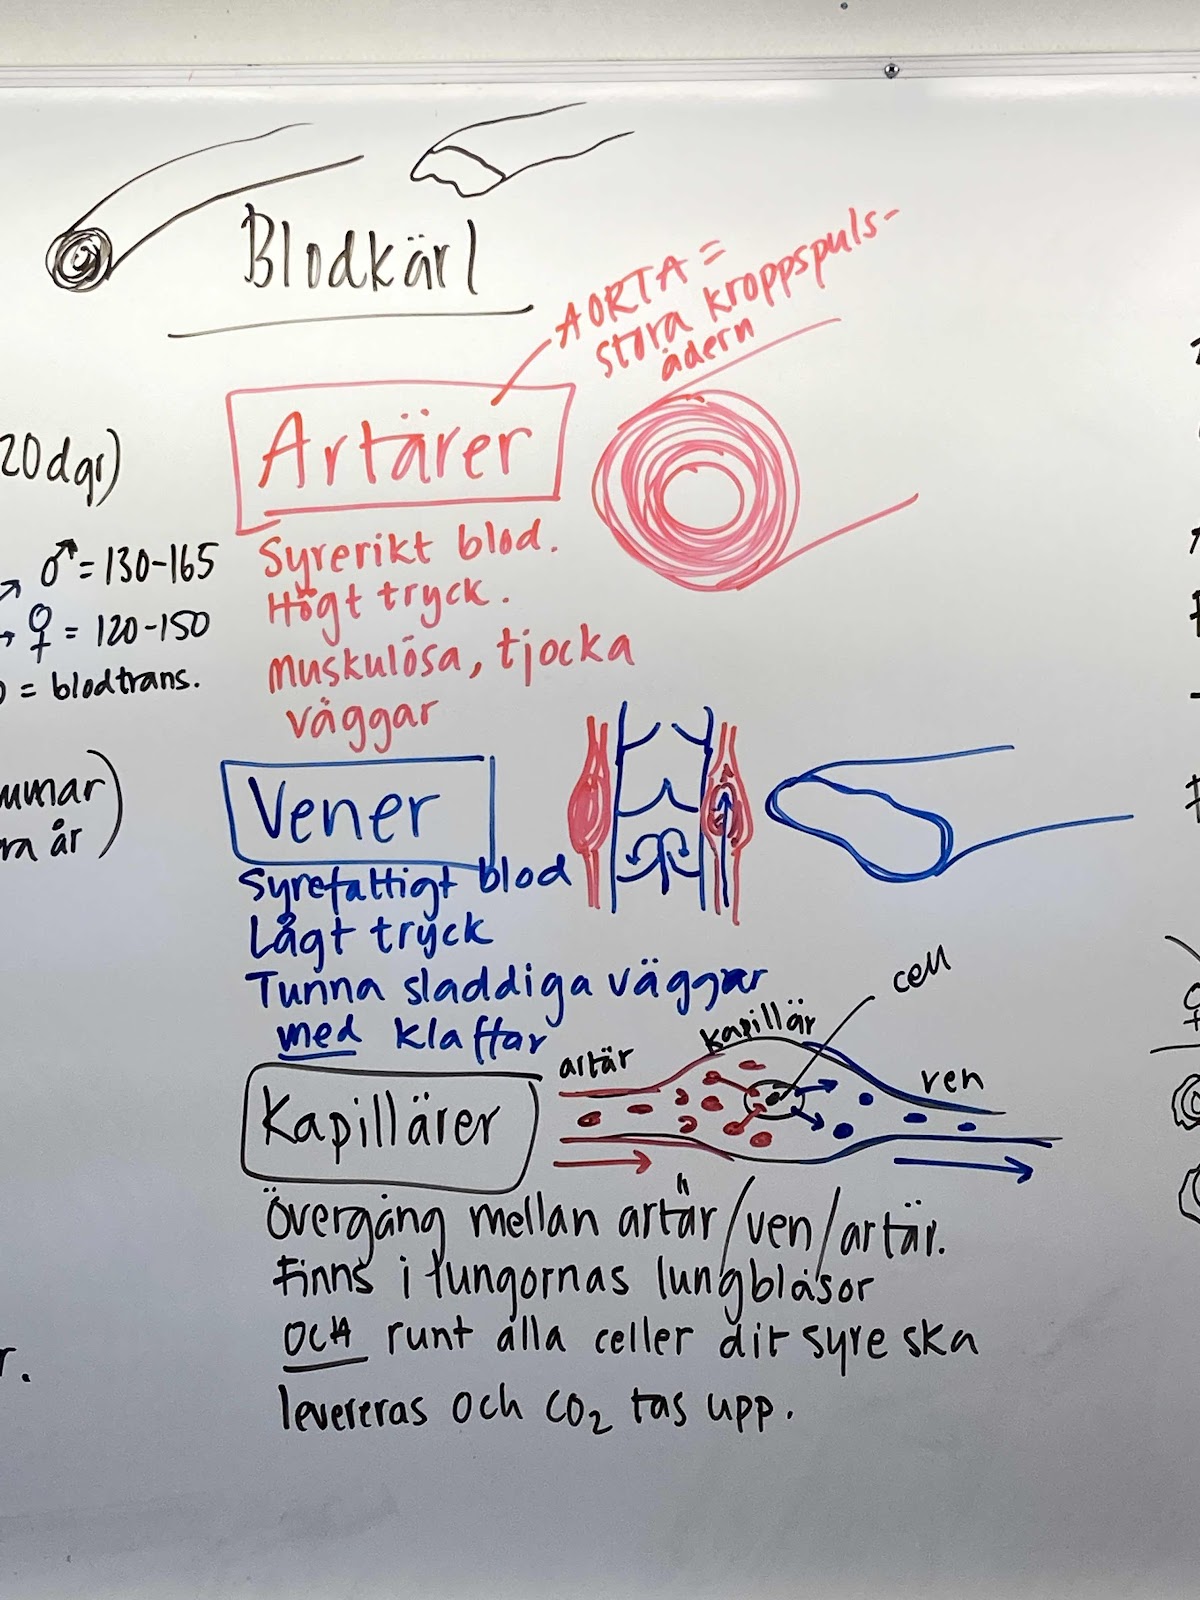 Blodkärl
AORTA =
stora kroppspuls-
ådern
Artärer
Syrerikt blod.
Högt tryck.
muskulösa, tjocka
väggar
20dgr)
♂ = 130-165
♀ = 120-150
= blodtrans.
år)
Vener
Syrefattigt blod
Lågt tryck
Tunna sladdiga väggar
med klaffar
cell
kapillär
artär
ven
Kapillärer
Övergång mellan artär/ven/artär.
Finns i lungornas lungblåsor
OCH runt alla celler dit syre ska
levereras och CO₂ tas upp.